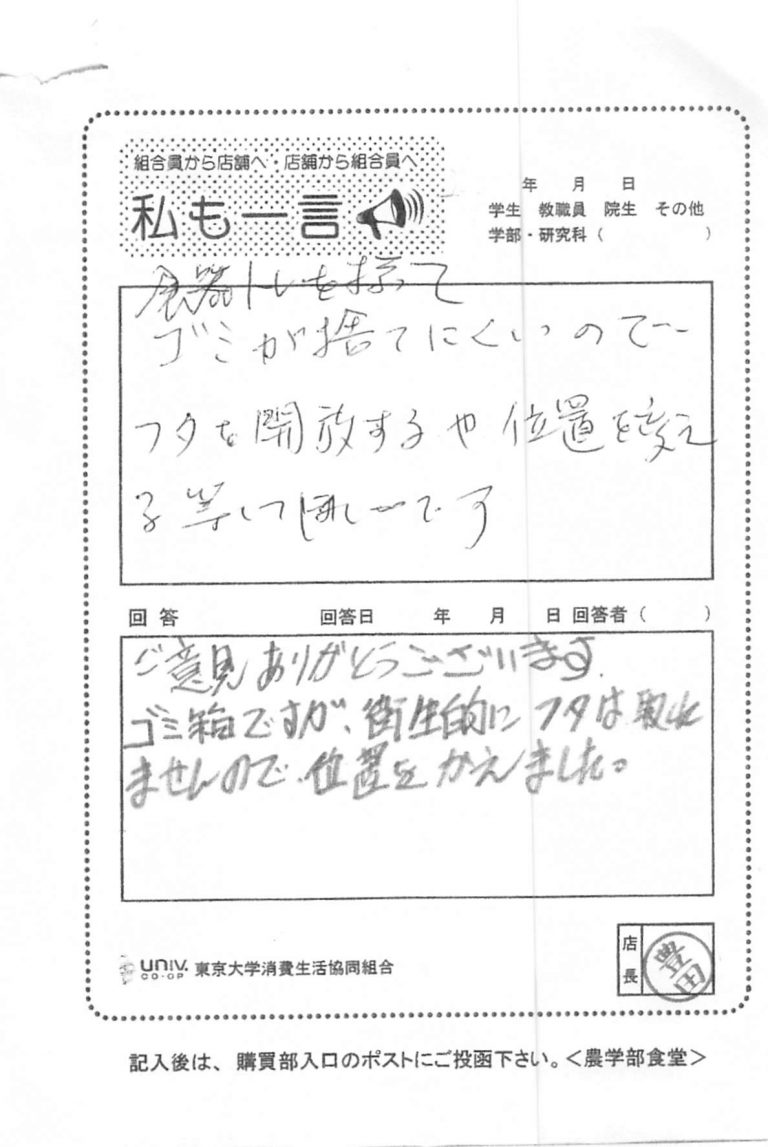 組合員から店舗へ・店舗から組合員へ
私も一言
年 月 日
学生 教職員 院生 その他
学部・研究科( )
食器トレを持って
ゴミが捨てにくいので…
フタを開放するや位置を変え
る等してほしいです
回答 回答日 年 月 日 回答者( )
ご意見ありがとうございます。
ゴミ箱ですが、衛生的にフタは取れ
ませんので、位置をかえました。
UNIV. CO-OP 東京大学消費生活協同組合
店長 豊田
記入後は、購買部入口のポストにご投函下さい。＜農学部食堂＞